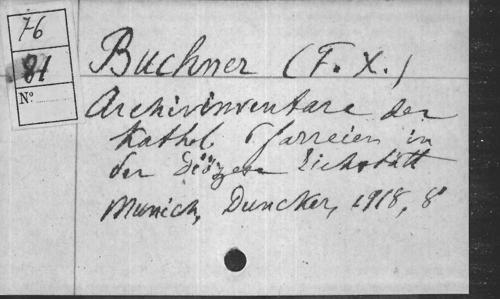 76
81
N°
Buchner (F. X.)
Archivinventare der
Kathol. Pfarreien in
der Diözese Eichstätt
Munich, Duncker, 1918, 8°